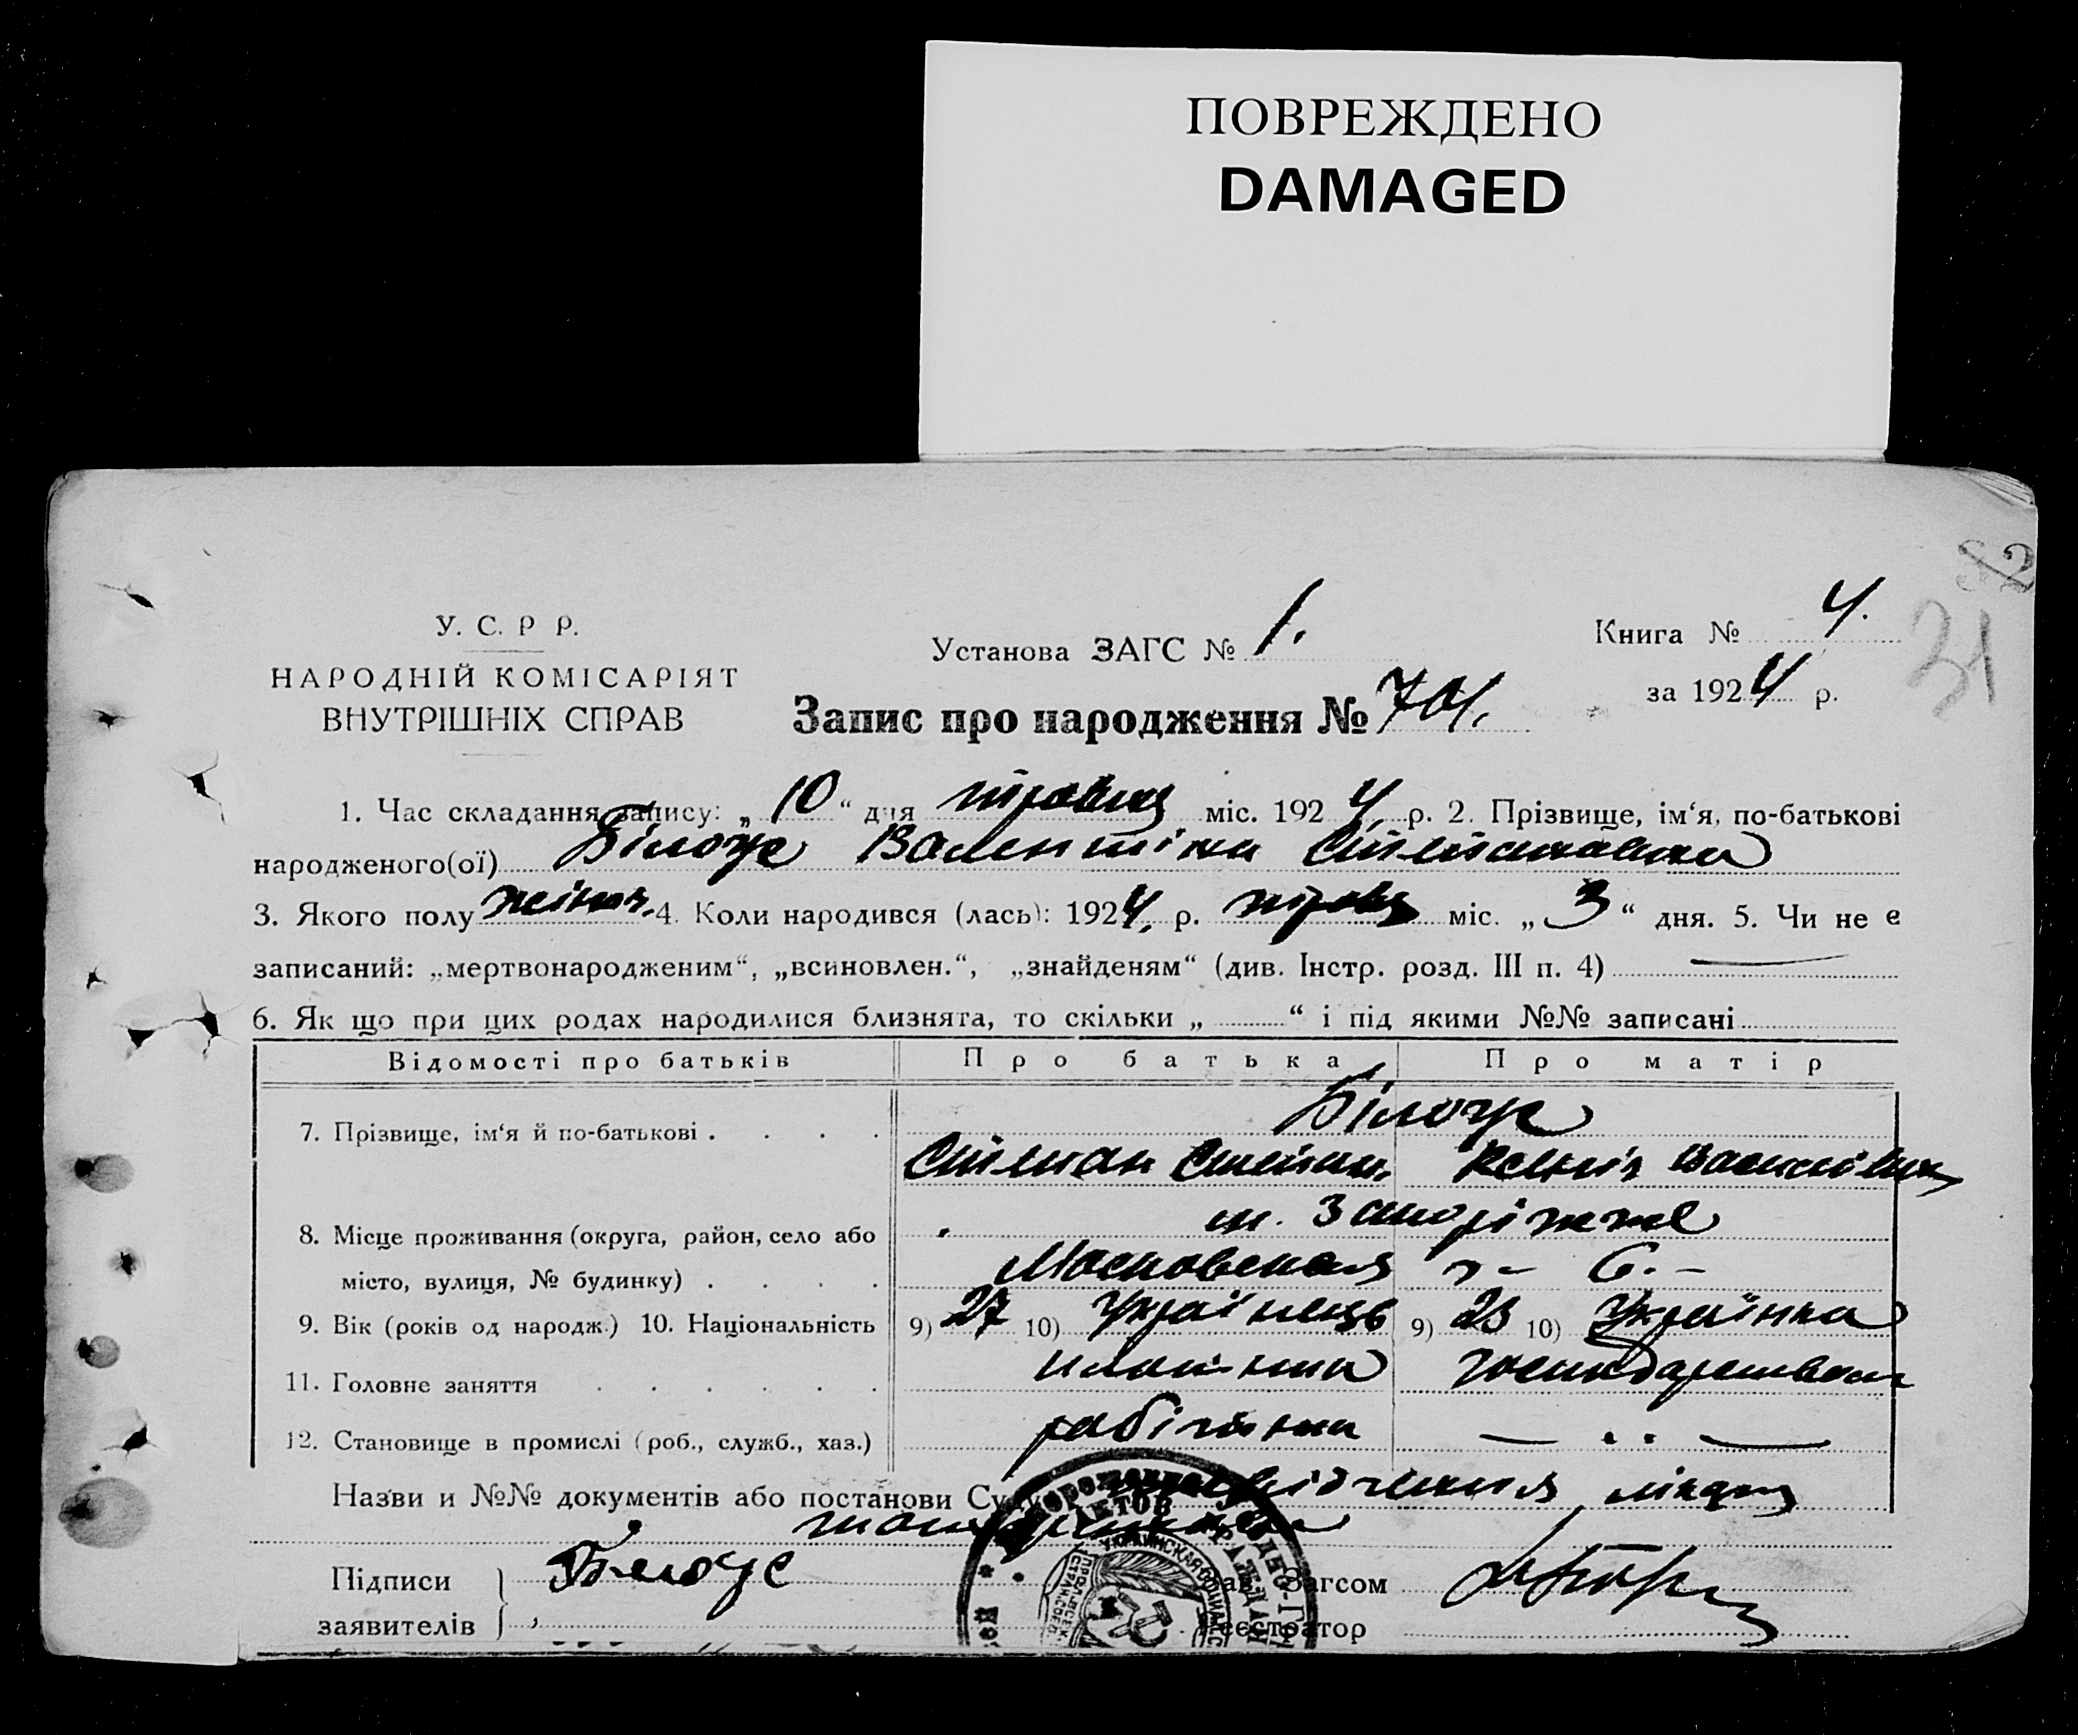 ПОВРЕЖДЕНО
DAMAGED
32
31
У. С. Р Р.
НАРОДНІЙ КОМІСАРІЯТ
ВНУТРІШНІХ СПРАВ
Установа ЗАГС № 1.
Книга № 4.
за 1924 р.
Запис про народження № 701.
1. Час складання запису: „ 10 “ дня травця міс. 1924, р. 2. Прізвище, ім‘я, по-батькові
народженого(ої) Білоус Валентіна Стіпановна
3. Якого полу жіноч. 4. Коли народився (лась): 1924, р. травц міс. „ 3 “ дня. 5. Чи не є
записаний: „мертвонародженим“, „всиновлен.“, „знайденям“ (див. Інстр. розд. III п. 4) —
6. Як що при цих родах народилися близнята, то скільки „ “ і під якими №№ записані
Відомості про батьків Про батька Про матір
7. Прізвище, ім‘я й по-батькові . . . . Білоус
Стіпан Ксенія Васил
8. Місце проживання (округа, район, село або м. Запоріжже
місто, вулиця, № будинку) . . . . Московская 6. –
9. Вік (років од народж.) 10. Національність 9) 27 10) Українець 9) 23 10) Українка
11. Головне заняття . . . . . .
12. Становище в промислі (роб., служб., хаз.) робітник — . . —
Назви и №№ документів або постанови Суду
Підписи Білоус Зав. Загсом
заявителів Реєстратор